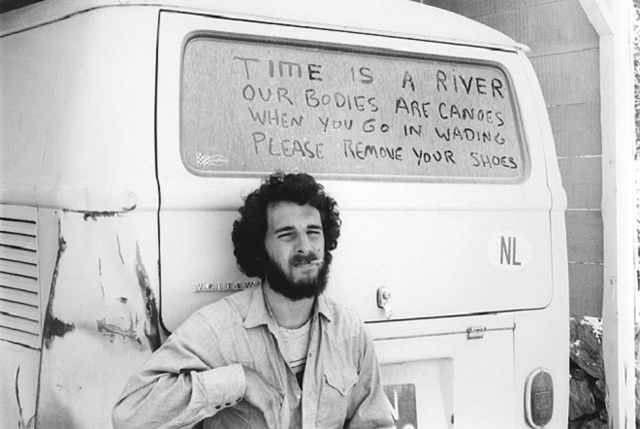 TIME IS A RIVER
OUR BODIES ARE CANOES
WHEN YOU GO IN WADING
PLEASE REMOVE YOUR SHOES
NL